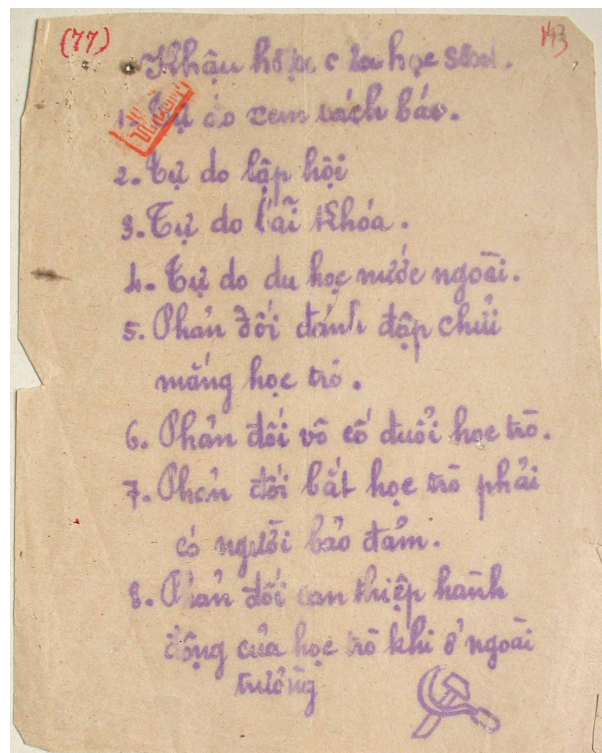 (77)
143
Khẩu hiệu của học sinh.
1. Tự do xem sách báo.
2. Tự do lập hội
3. Tự do bãi khóa.
4. Tự do du học nước ngoài.
5. Phản đối đánh đập chửi
mắng học trò.
6. Phản đối vô cố đuổi học trò.
7. Phản đối bắt học trò phải
có người bảo đảm.
8. Phản đối can thiệp hành
động của học trò khi ở ngoài
trường